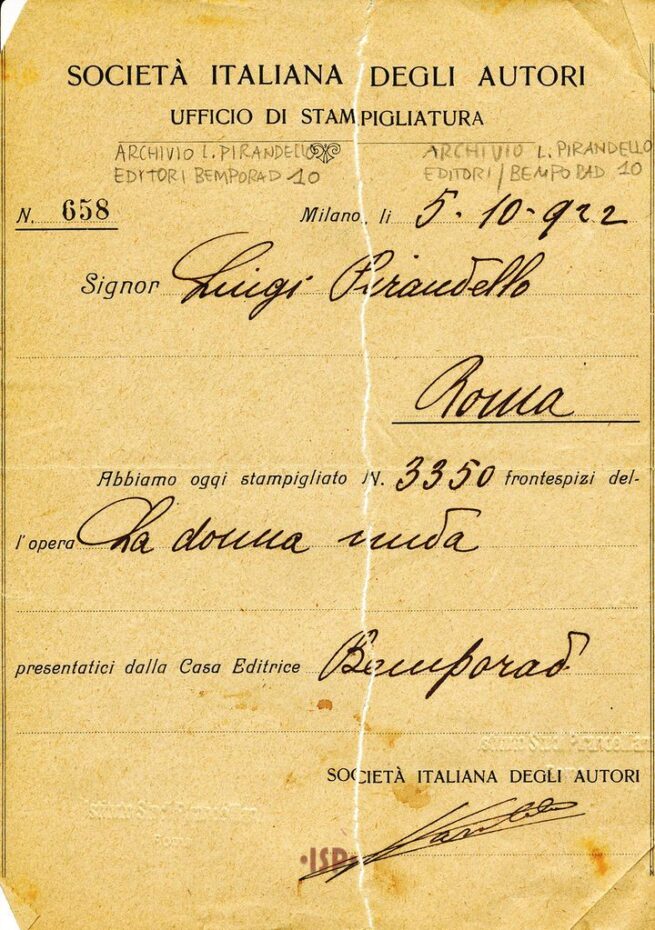 SOCIETÀ ITALIANA DEGLI AUTORI
UFFICIO DI STAMPIGLIATURA
ARCHIVIO L. PIRANDELLO ARCHIVIO L. PIRANDELLO
EDITORI BEMPORAD 10 EDITORI / BEMPORAD 10
N. 658 Milano, li 5-10-922
Signor Luigi Pirandello
Roma
Abbiamo oggi stampigliato N. 3350 frontespizi del-
l'opera La donna nuda
presentatici dalla Casa Editrice Bemporad
SOCIETÀ ITALIANA DEGLI AUTORI
·ISP·